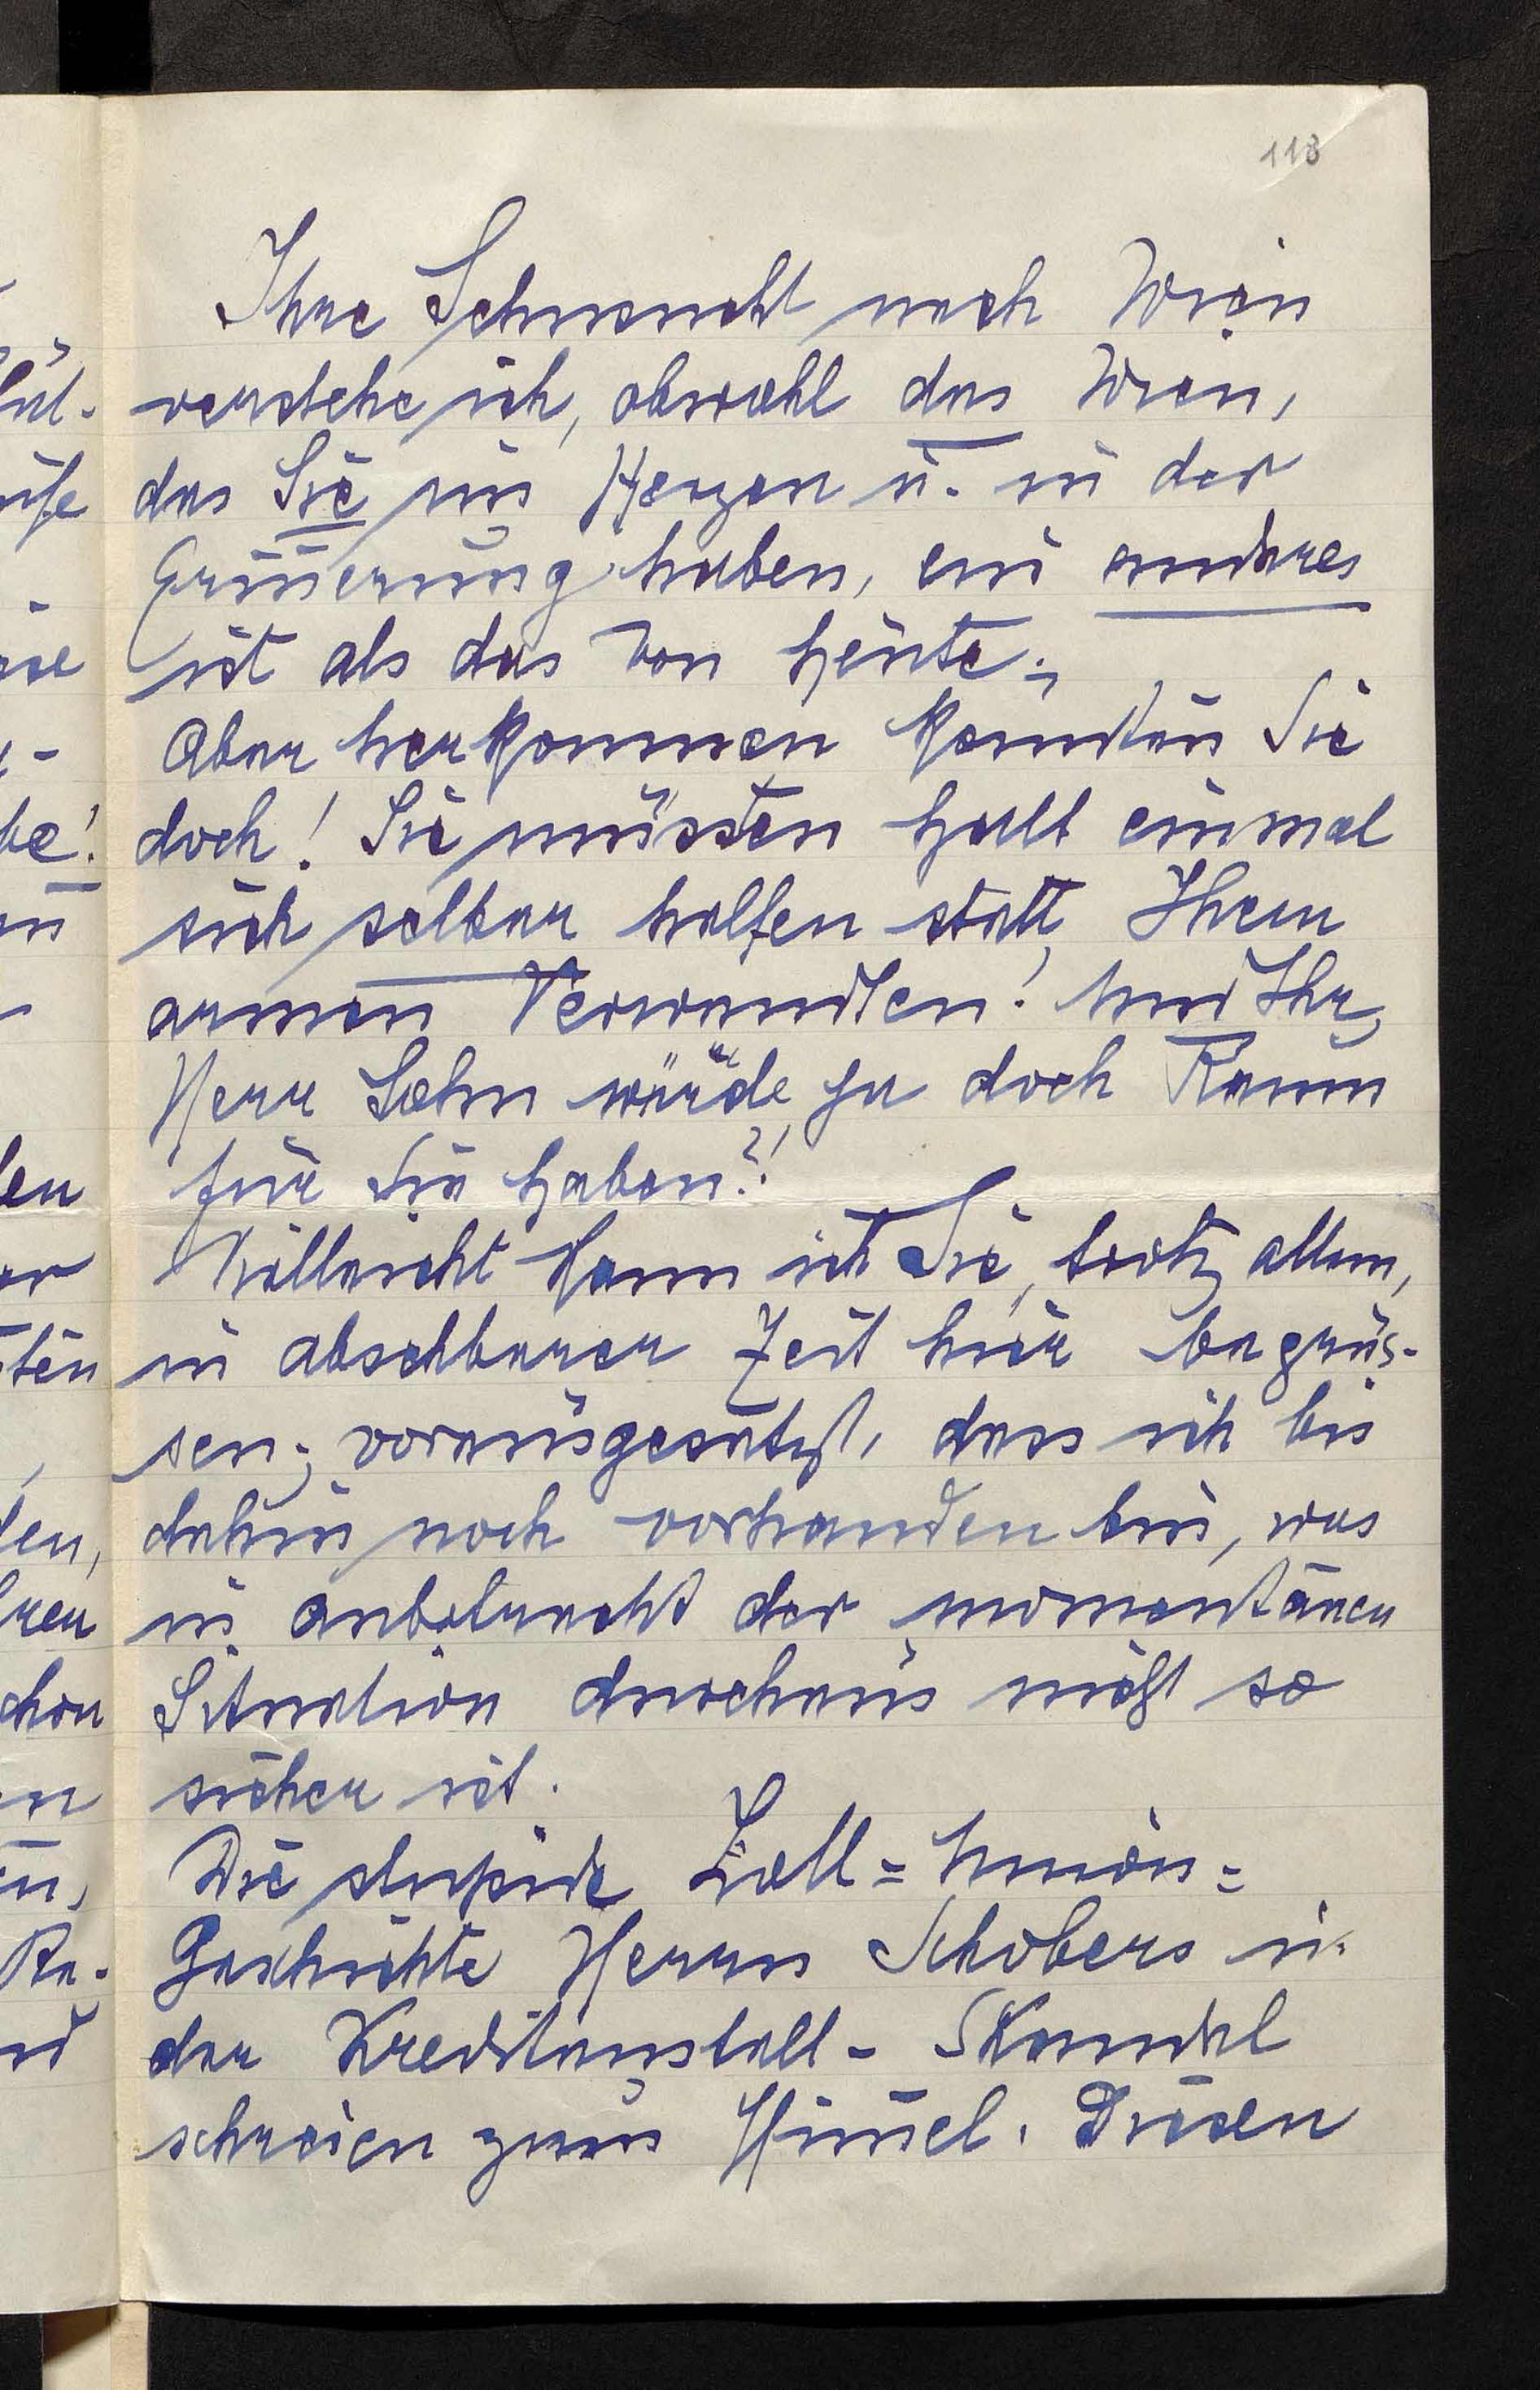 113
Ihre Sehnsucht nach Wien
verstehe ich, obwohl das Wien,
das Sie im Herzen u. in der
Erinnerung haben, ein anderes
ist als das von heute.,
Aber herkommen könnten Sie
doch! Sie müssten halt einmal
sich selber helfen statt Ihren
armen Verwandten! Und Ihr
Herr Sohn würde ja doch Raum
für Sie haben?!
Vielleicht kann ich Sie, trotz allem,
in absehbarer Zeit hier begrüs-
sen; vorausgesetzt, dass ich bis
dahin noch vorhanden bin, was
in anbetracht der momentanen
Situation durchaus nicht so
sicher ist.
Die stupide Zoll=Union=
Geschichte Herrn Schobers u.
der Kreditanstalt-Skandal
schreien zum Himmel. Diesen